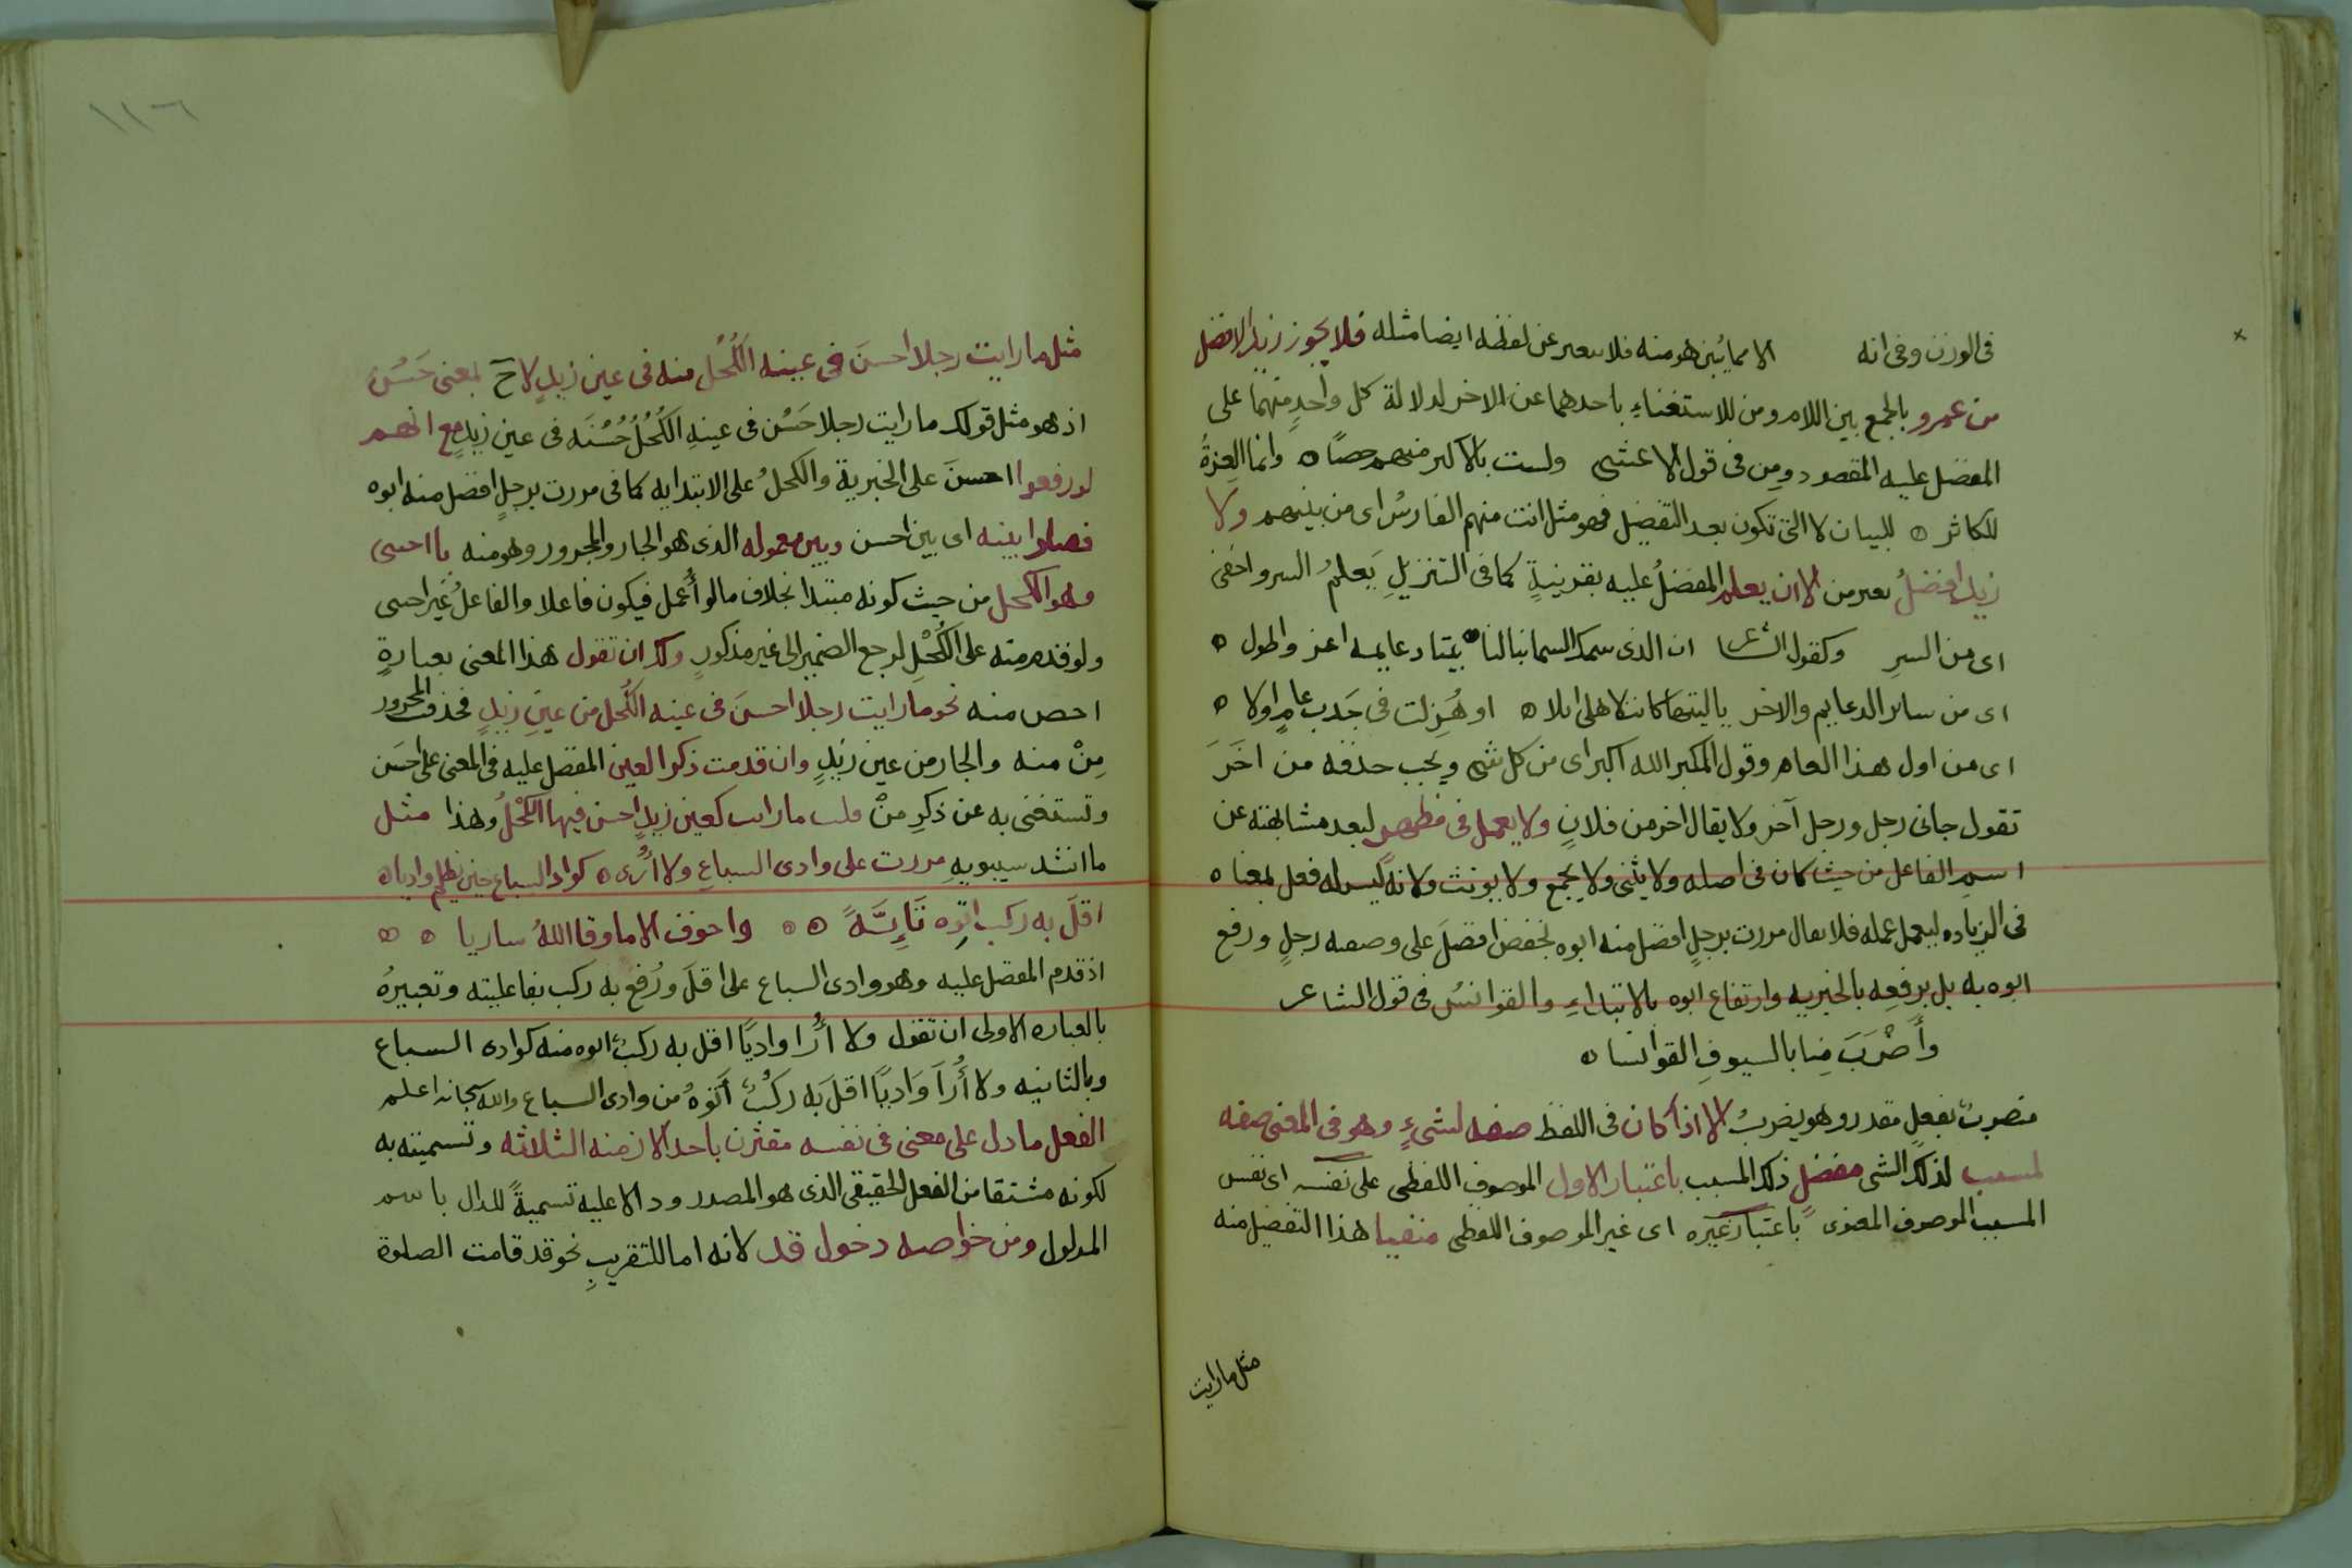 فى الوزن وفى انه الا مما يُبَيَّن هو منه فلا يعبر عن لفظه ايضا مثله فلا يجوز زيد الافضل
من عمرو بالجمع بين اللام ومن للاستغناءِ باحدهما عن الاخر لدلالة كل واحدٍ منهما على
المفضل عليه المقصود ومِن فى قول الاعشى ولست بالاكثر منهم حصًا ه وانما العِزةُ
للكاثر ه للبيان لا التى تكون بعد التفضيل فهو مثل انت منهم الفارسُ اى من بينهم ولا
زيد افضلُ من الا ان يعلم المفضلُ عليه بقرينةٍ كما فى التنزيلِ يَعلمُ السر واخفى
اى من السرِ وكقول الشاعر ان الذى سمك السما بنا لنا بيتا دعايمه اعز واطول ه
اى من ساير الدعايم والاخر ياليتها كانت لاهلى ابلا ه او هُزِلت فى جَدب عامٍ اولا ه
اى من اول هذا العام وقول المكبر الله اكبر اى من كل شى ويجب حذفه من اخَرَ
تقول جانى رجل ورجل آخر ولا يقال اخر من فلانٍ ولا يعمل فى مظهرٍ لبعد مشابهته عن
اسمِ الفاعل من حيث كان فى اصله ولا يثنى ولا يجمع ولا يونث ولانه ليس له فعل بمعناه
فى الزياده ليعمل عمله فلا يقال مررت برجلٍ افضل منه ابوه بخفض افضلَ على وصفه رجلٍ ورفع
ابوه به بل برفعِه بالخبريه وارتفاع ابوه بالابتداءِ والقوانسُ فى قول الشاعر
وأَضْرَبَ مِنا بالسيوفِ القوانسا ه
منصوبٌ بفعلٍ مقدر وهو يضربُ الا اذا كان فى اللفظ صفه لشىءٍ وهو فى المعنى صفه
لمسببٍ لذلك الشى مفضلٍ ذلك المسبب باعتبار الاول الموصوف اللفظى على نفسه اى نفس
المسبب الموصوف المعنوى باعتبار غيره اى غير الموصوف اللفظى منفيا هذا التفضيل منه
مثل ما رايت
١١٦
مثل ما رايت رجلا احسنَ فى عينه الكُحل منه فى عين زيدٍ لاحَ بمعنى حَسُن
اذ هو مثل قولك ما رايت رجلا حَسُن فى عينِه الكُحلُ حُسْنَه فى عين زيدٍ مع انهم
لو رفعوا احسن على الخبرية والكحلُ على الابتدايه كما فى مررت برجلٍ افضل منه ابوه
فصلوا بينه اى بين احسن وبين معموله الذى هو الجار والمجرور وهو منه باجنبى
وهو الكحل من حيث كونه مبتدا بخلاف ما لو أُعمل فيكون فاعلا والفاعلُ غير اجنبى
ولو قدم منه على الكُحْلِ لرجع الضمير الى غير مذكورٍ ولك ان تقول هذا المعنى بعبارةٍ
اخصر منه نحو ما رايت رجلا احسنَ فى عينه الكُحل من عينِ زيدٍ فحذفت المجرور
مِنْ منه والجار من عين زيدٍ وان قدمت ذكر العين المفضل عليه فى المعنى على احسَن
وتستغنى به عن ذكرِ مِنْ قلت ما رايت كعين زيدٍ احسن فيها الكُحْلُ وهذا مثل
ما انشد سيبويهِ مررت على وادى السباعِ ولا أُرى ه كواد السباع حين يظلم واديا ه
اقلَّ به ركبٌ اتوه تَإِيَّةً ه ه واخوف الا ما وقا اللهُ ساريا ه ه
اذ قدم المفضل عليه وهو وادى السباع على اقلَ ورُفع به ركب بفاعليته وتعبيرُه
بالعباره الاولى ان تقول ولا أُرا واديًا اقل به ركبٌ اتوه منه كوادى السباع
وبالثانيه ولا أُرَا وَاديًا اقلَ به رَكْبٌ أَتَوْهُ من وادى السباع والله سبحانه اعلم
الفعل ما دل على معنى فى نفسه مقترن باحد الازمنه الثلاثه وتسميته به
لكونه مشتقا من الفعل الحقيقى الذى هو المصدر ودالا عليه تسميةً للدال باسم
المدلول ومن خواصه دخول قد لانه اما للتقريبِ نحو قد قامت الصلوة